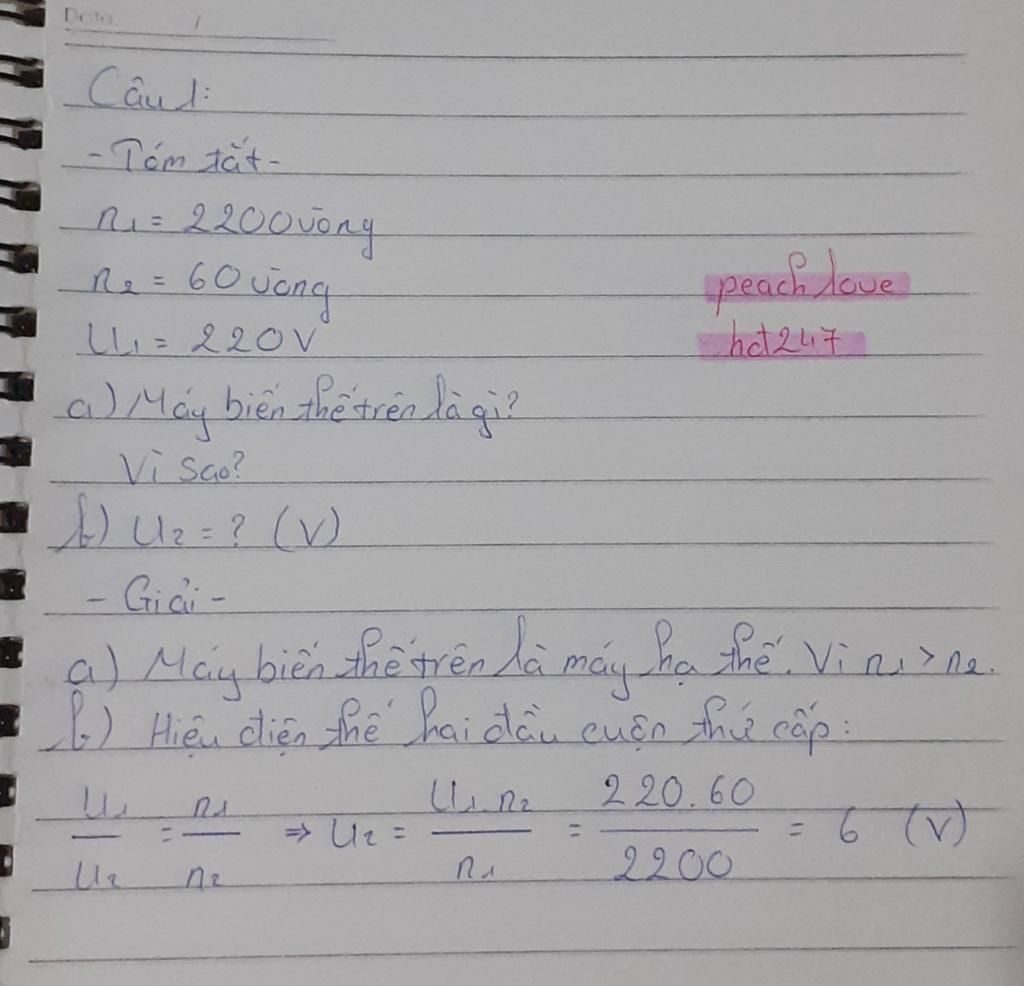 Date. /
Câu 1:
- Tóm tắt -
n1 = 2200 vòng
n2 = 60 vòng
U1 = 220V
peach love
hct247
a) Máy biến thế trên là gì?
Vì sao?
b) U2 = ? (V)
- Giải -
a) Máy biến thế trên là máy hạ thế. Vì n1 > n2.
b) Hiệu điện thế hai đầu cuộn thứ cấp:
U1/U2 = n1/n2 => U2 = U1.n2/n1 = 220.60/2200 = 6 (V)